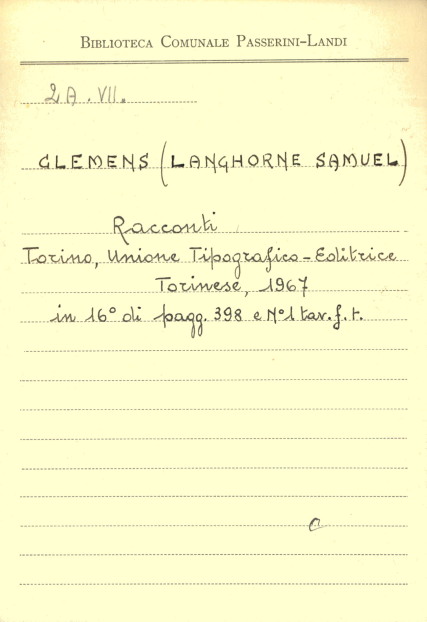 BIBLIOTECA COMUNALE PASSERINI-LANDI
2A.VII.
CLEMENS (LANGHORNE SAMUEL)
Racconti
Torino, Unione Tipografico-Editrice
Torinese, 1967
in 16° di pagg. 398 e N°1 tav. f. t.
C